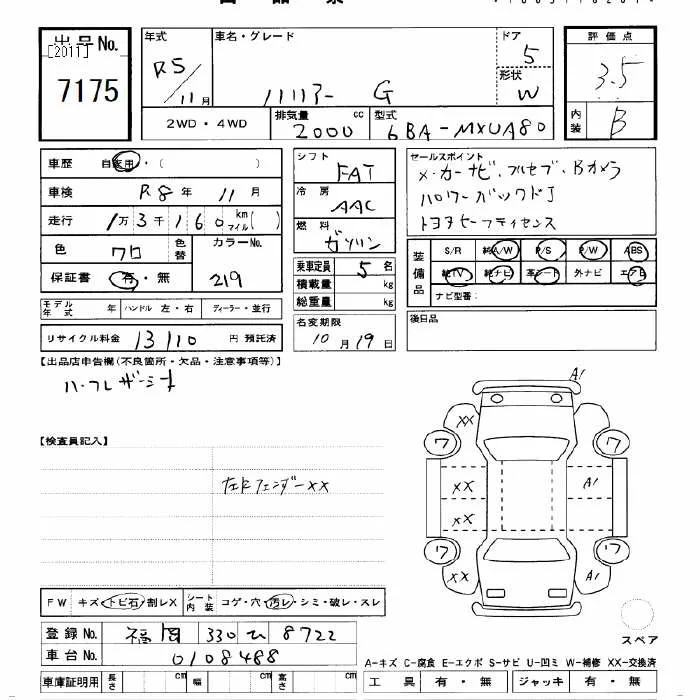 出品No.
[2011]
7175
年式
R5/11月
車名・グレード
ハリアー G
ドア
5
形状
W
評価点
3.5
内装
B
2WD・4WD
排気量
2000 cc
型式
6BA-MXUA80
車歴 自家用・( )
車検 R8年 11月
走行 1万3千160 km マイル( )
色 クロ
色替
カラーNo.
219
保証書 有・無
モデル年式 年 ハンドル 左・右 ディーラー・並行
リサイクル料金 13110 円 預託済
シフト
FAT
冷房
AAC
燃料
ガソリン
乗車定員 5名
積載量 kg
総重量 kg
名変期限
10月19日
セールスポイント
メーカーナビ、フルセグ、Bカメラ
パワーバックドア
トヨタセーフティセンス
装備品
S/R 純A/W P/S P/W ABS
純TV 純ナビ 革シート 外ナビ エアB
ナビ型番:
後日品
【出品店申告欄(不良箇所・欠品・注意事項等)】
ハーフレザーシート
【検査員記入】
左Fフェンダーxx
A1
xx
ワ
ワ
xx
A1
xx
ワ
ワ
xx
A1
スペア
FW キズ・トビ石・割レX
シート内装 コゲ・穴・汚レ・シミ・破レ・スレ
登録No. 福岡 330 ひ 8722
車台No. 0108488
車庫証明用 長さ cm 幅 cm 高さ cm
A-キズ C-腐食 E-エクボ S-サビ U-凹ミ W-補修 XX-交換済
工具 有・無 ジャッキ 有・無